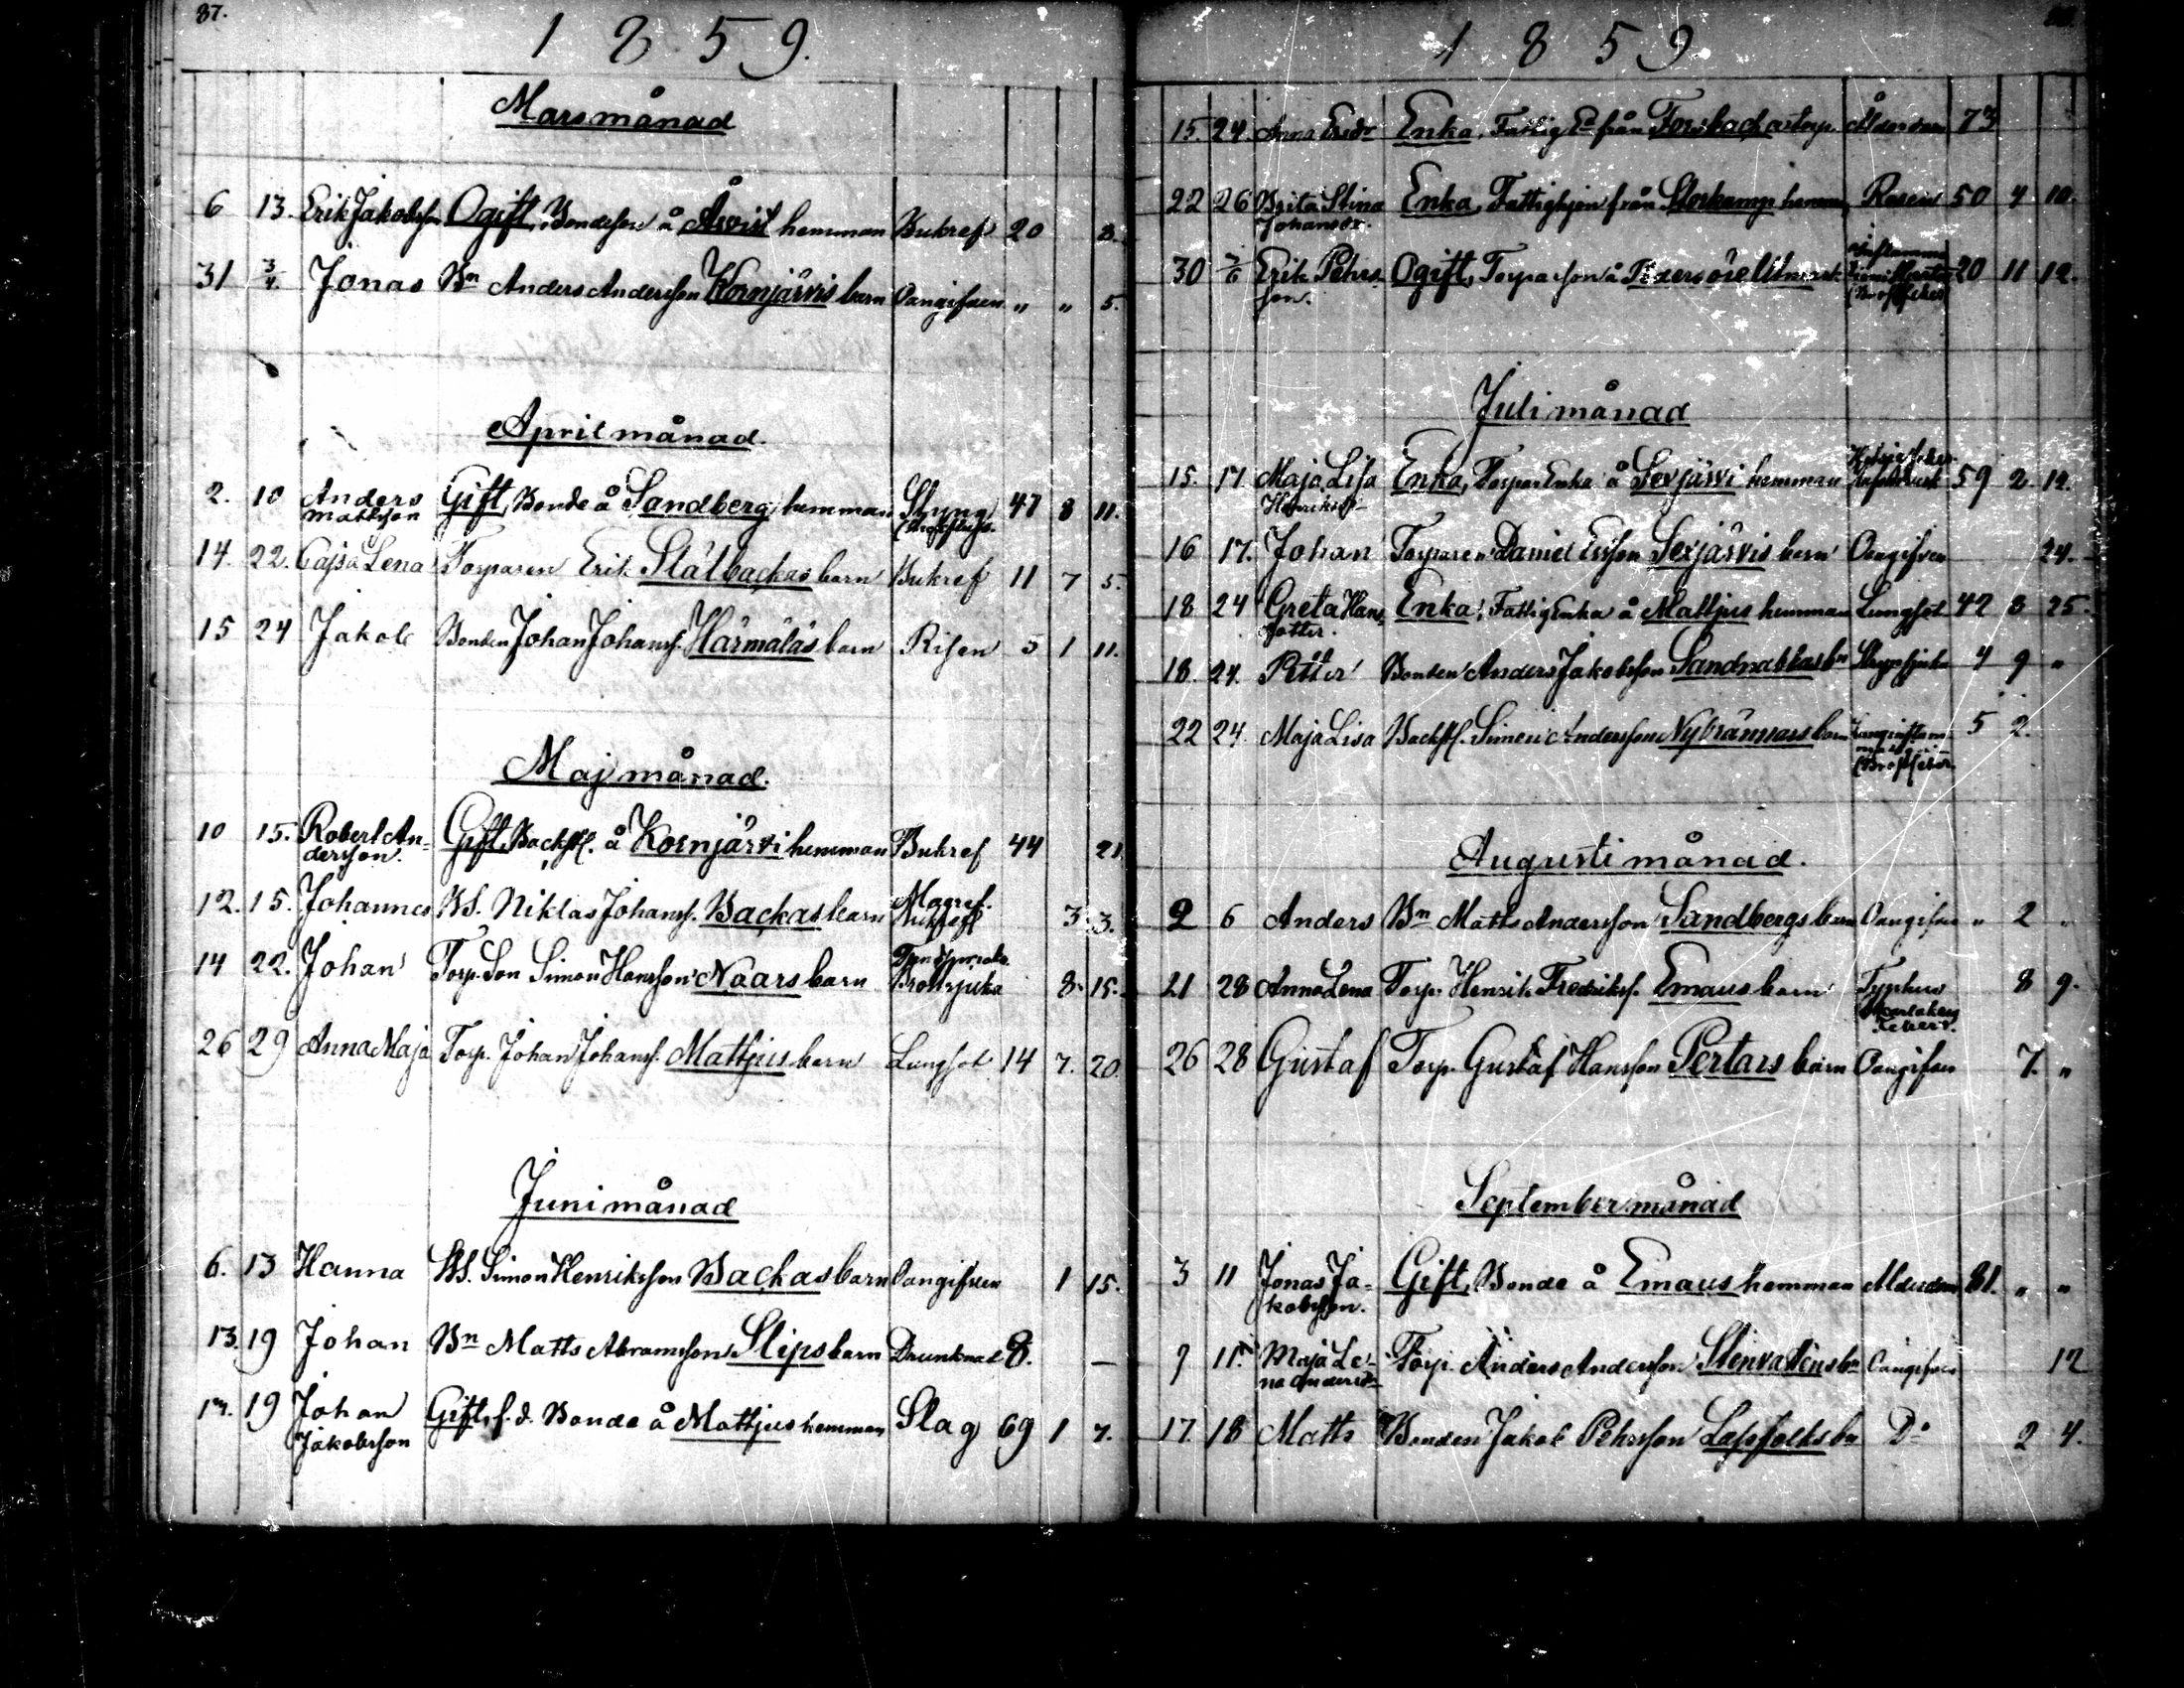 87.
1859.
Mars månad
6 13. Erik Jakobsson Ogift, Bondeson å Åsvist hemman Bukref 20 3.
31 3/4 Jonas Bn Anders Andersson Kornjärvis barn Oangifven " " 5.
April månad.
2. 10 Anders Mattsson Gift, Bonde å Sandberg hemman Styng 47 8 11.
14. 22. Cajsa Lena Torparen Erik Stålbackas barn Bukref 11 7 5.
15 24 Jakob Bonden Johan Johanss. Härmäläs barn Risen 5 1 11.
Maj månad.
10 15. Robert An-
dersson. Gift, Backst. å Kornjärvi hemman Bukref 44 21
12. 15. Johannes BS. Niklas Johanss. Backas barn Magref. 3 3.
14 22. Johan Torp. Son Simon Hansson Naars barn Bröstsjuka 8. 15.
26 29 Anna Maja Torp. Johan Johanss. Mattjus barn Lungsot 14 7. 20.
Juni månad
6. 13 Hanna BS. Simon Henriksson Backas barn Oangifven 1 15.
13. 19 Johan Bn Matts Abramsson Slips barn Drunknad 8. —
17. 19 Johan
Jakobsson Gift, f. d. Bonde å Mattjus hemman Slag 69 1 7.
1859
15. 24. Anna Ersdr Enka, Fattig Ea från Forsbacka torp. Ålderdom 73
22 26 Brita Stina
Johansdr. Enka, Fattighjon från Storkamp hemman Rosen 50 4. 10.
30 3/6 Erik Pehrs-
son. Ogift, Torpareson å 20 11 12.
Juli månad
15. 17 Maja Lisa
Henriksdr Enka, Torpar Enka å Sexjärvi hemman 59 2. 12.
16 17. Johan Torparen Daniel Ersson Sexjärvis barn Oangifven 24.
18 24 Greta Hans-
dotter. Enka, Fattig Enka å Mattjus hemman Lungsot 42 8 25.
18. 24. Petter Bonden Anders Jakobsson Sandnabbas bn Strypsjuka 4 9 "
22 24. Maja Lisa Backst. Simon Andersson Nybrännars barn Lunginflam-
mat.
(Bröstfeber) 5 2.
Augusti månad.
2 6 Anders Bn Matts Andersson Sandbergs barn Oangifven " 2 "
21 28 Anna Lena Torp. Henrik Fredrikss. Emaus barn Typhus 8 9.
26 28 Gustaf Torp. Gustaf Hansson Pertars barn Oangifven 7. "
September månad
3 11 Jonas Ja-
kobsson. Gift, Bonde å Emaus hemman Ålderdom 81. " "
9 11. Maja Le-
na Andersdr Torp. Anders Andersson Stenvattens bn Oangifven 12
17. 18 Matts Bonden Jakob Pehrsson Lassfolks bn Do 2 4.